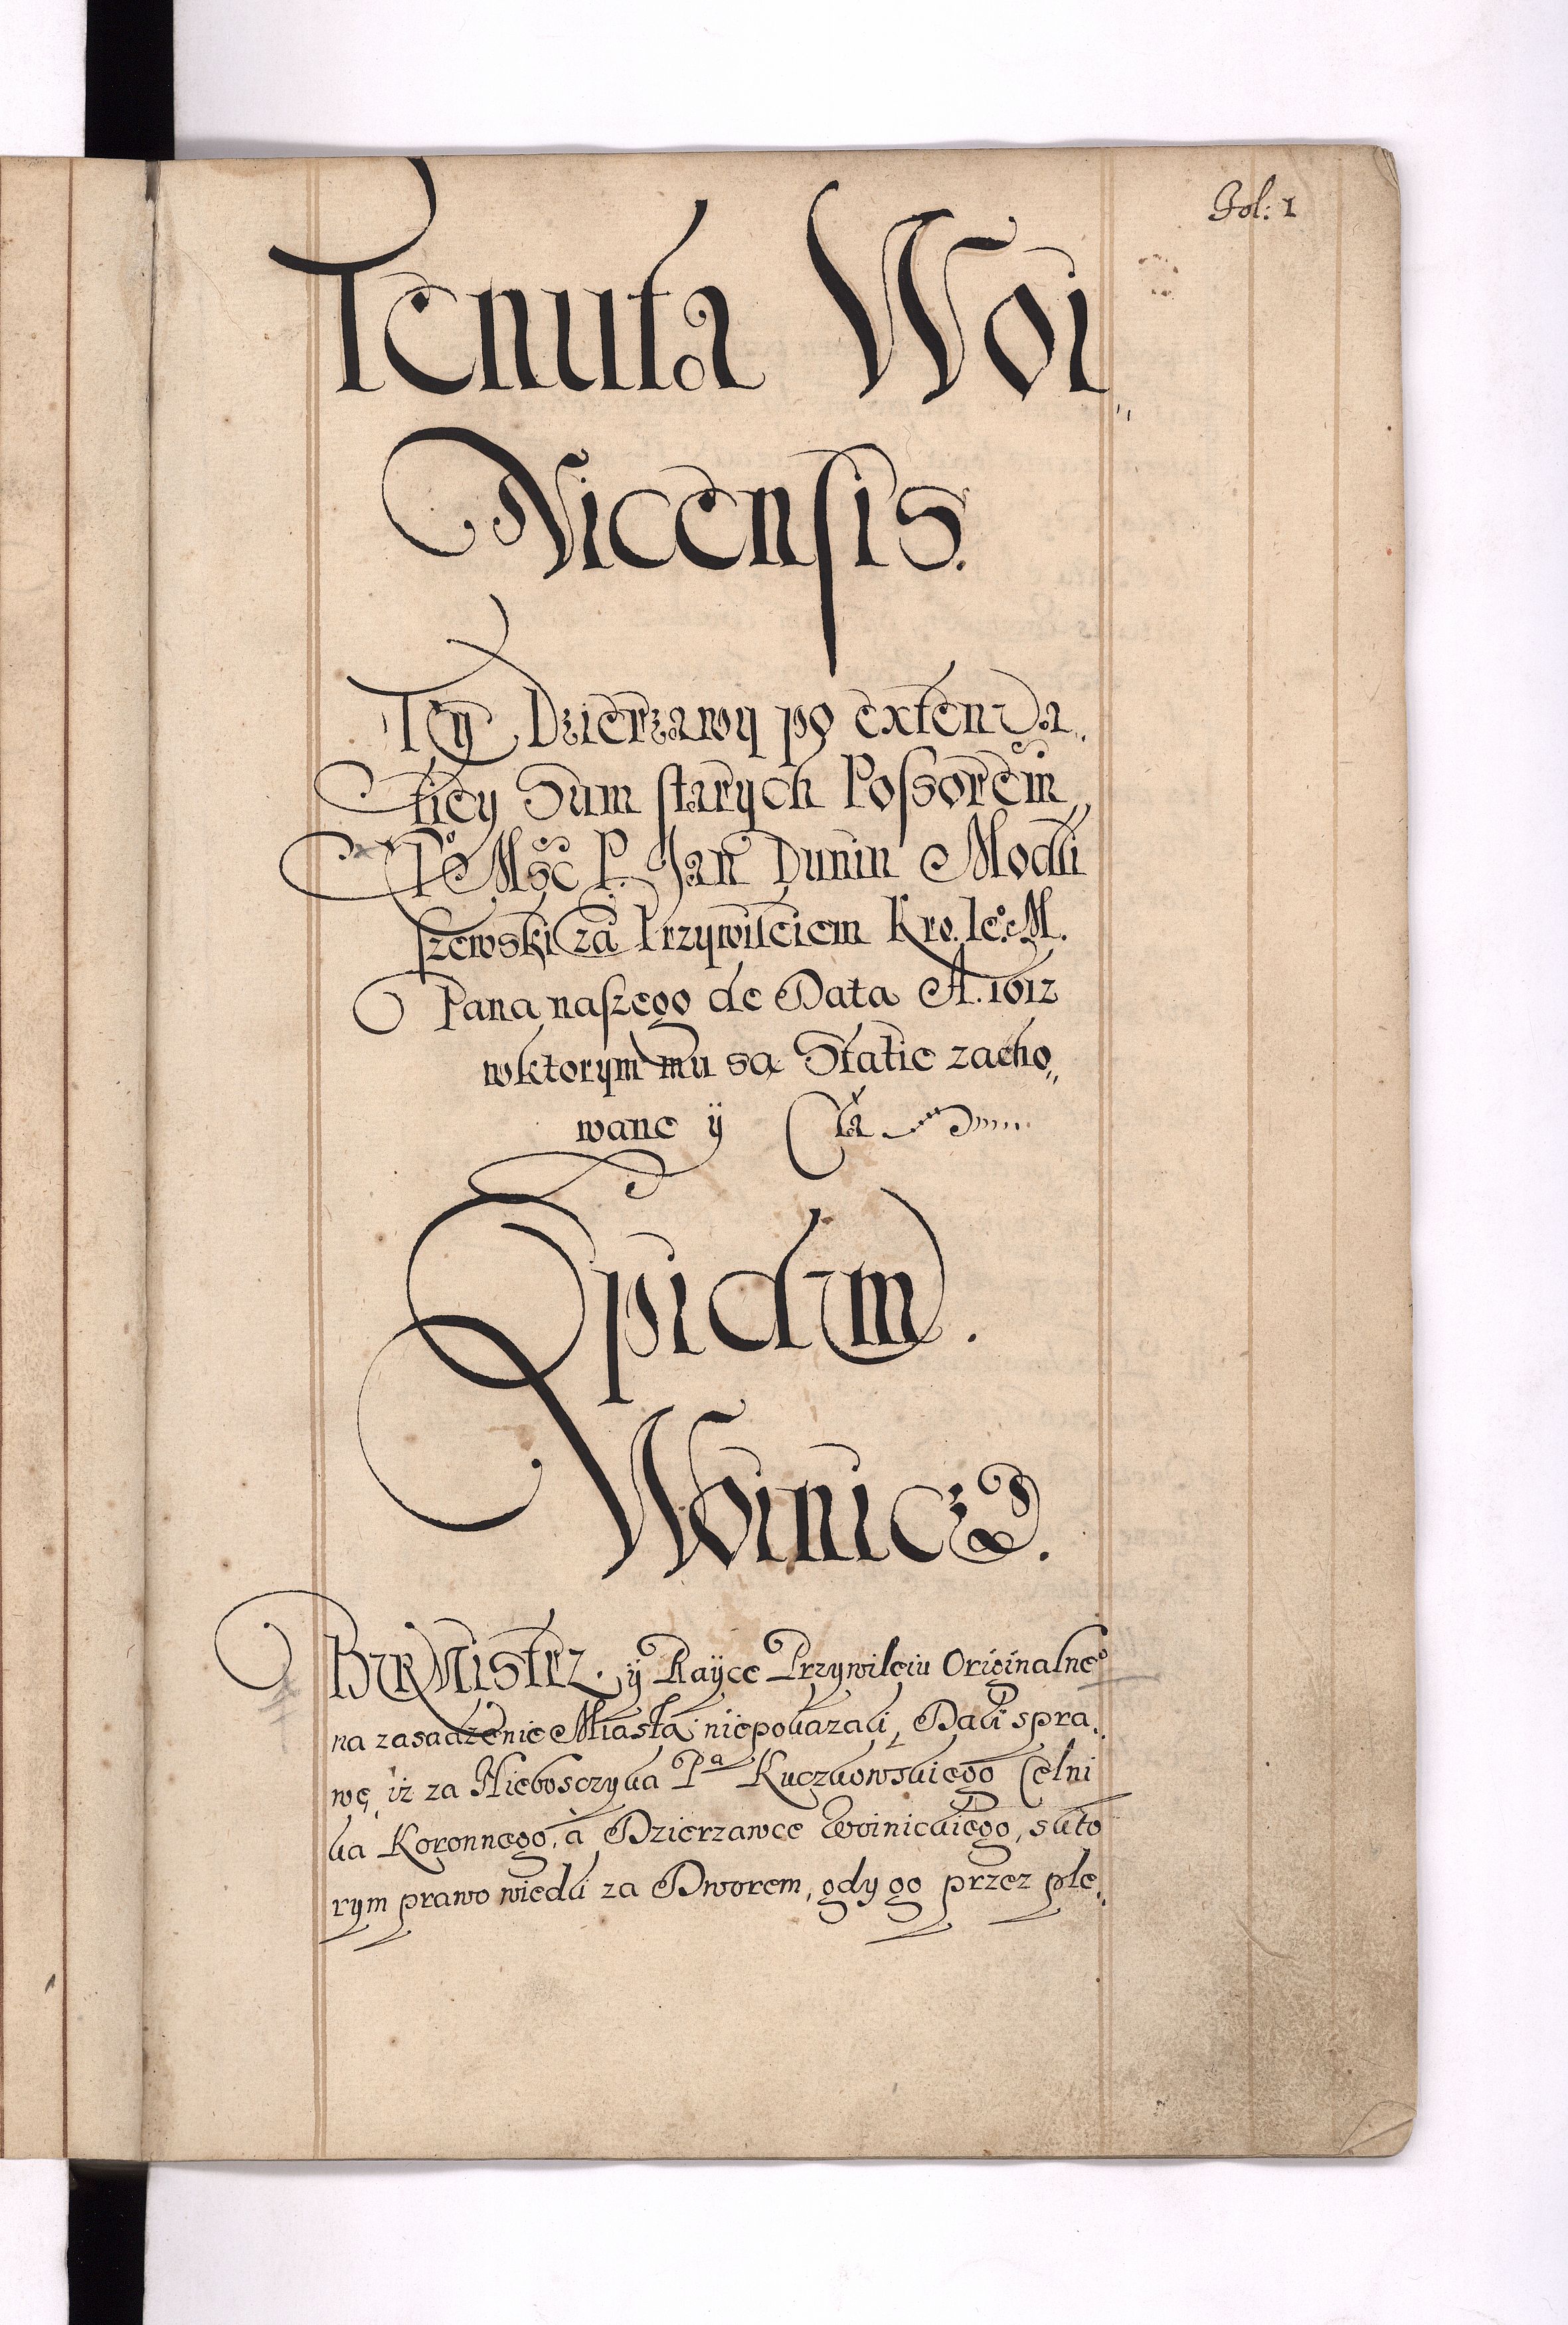 Fol: 1
Tenuta Woi„
Nicensis.
Tey Dzierzawy po extenua„
tiey Sum starych Possorem„
Je° Mść P. Jan Dunin Modli
szewski za Przywileiem Kro. Ie°. M.
Pana naszego de Data A. 1612
wktorym mu są Statie zacho„
wane ÿ
Opidum.
Woinicz.
Burmistrz. ÿ Rayce Przywileiu Originalne°
na zasadzenie Miasta niepokazali, Dali spra„
wę, iż za Nieboszczyka Pª Kuczkowskiego Celni
ka Koronnego, à Dzierzawce Woinickiego, s kto
rym prawo wiedli za Dworem, gdy go przez ple„